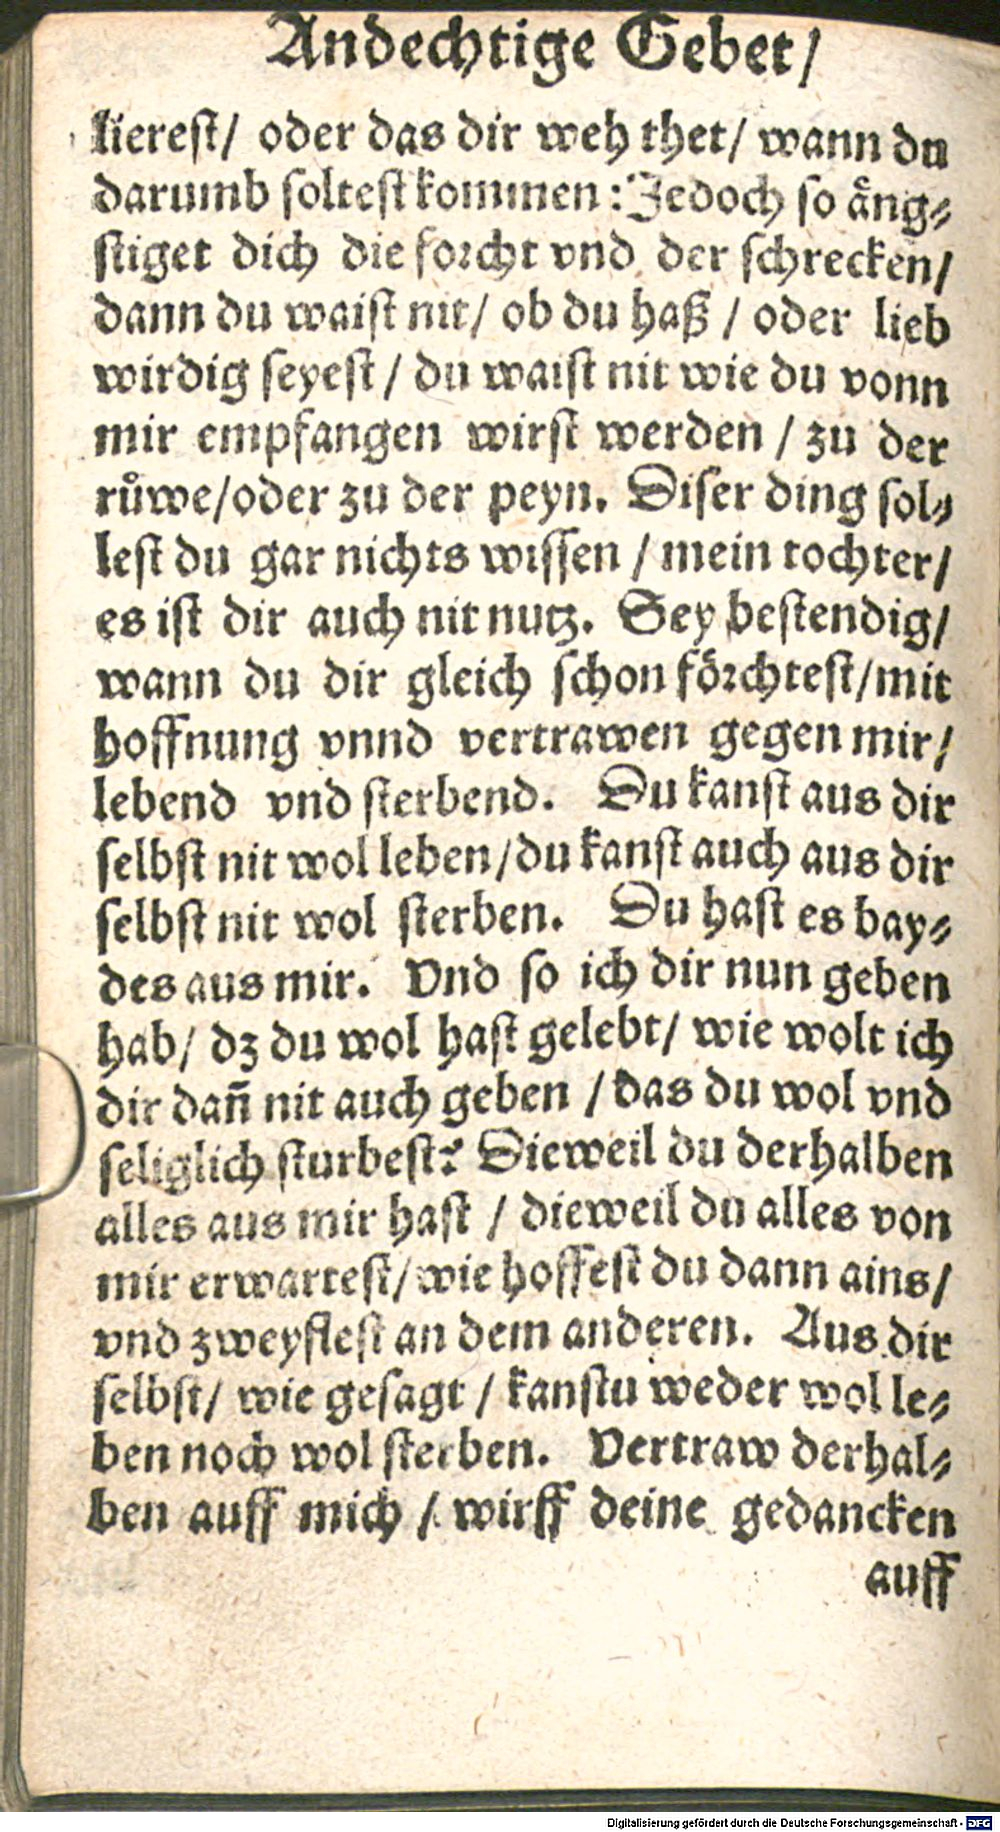 Andechtige Gebet/
lierest/ oder das dir weh thet/ wann du
darumb soltest kommen: Jedoch so äng⸗
stiget dich die forcht vnd der schrecken/
dann du waist nit/ ob du haß / oder lieb
wirdig seyest / du waist nit wie du vonn
mir empfangen wirst werden / zu der
růwe/oder zu der peyn. Diser ding sol⸗
lest du gar nichts wissen / mein tochter/
es ist dir auch nit nutz. Sey bestendig/
wann du dir gleich schon förchtest/mit
hoffnung vnnd vertrawen gegen mir/
lebend vnd sterbend. Du kanst aus dir
selbst nit wol leben/du kanst auch aus dir
selbst nit wol sterben. Du hast es bay⸗
des aus mir. Vnd so ich dir nun geben
hab/ dz du wol hast gelebt/ wie wolt ich
dir dañ nit auch geben / das du wol vnd
seliglich sturbest? Dieweil du derhalben
alles aus mir hast / dieweil du alles von
mir erwartest/ wie hoffest du dann ains/
vnd zweyflest an dem anderen. Aus dir
selbst/ wie gesagt / kanstu weder wol le⸗
ben noch wol sterben. Vertraw derhal⸗
ben auff mich / wirff deine gedancken
auff
Digitalisierung gefördert durch die Deutsche Forschungsgemeinschaft - DFG